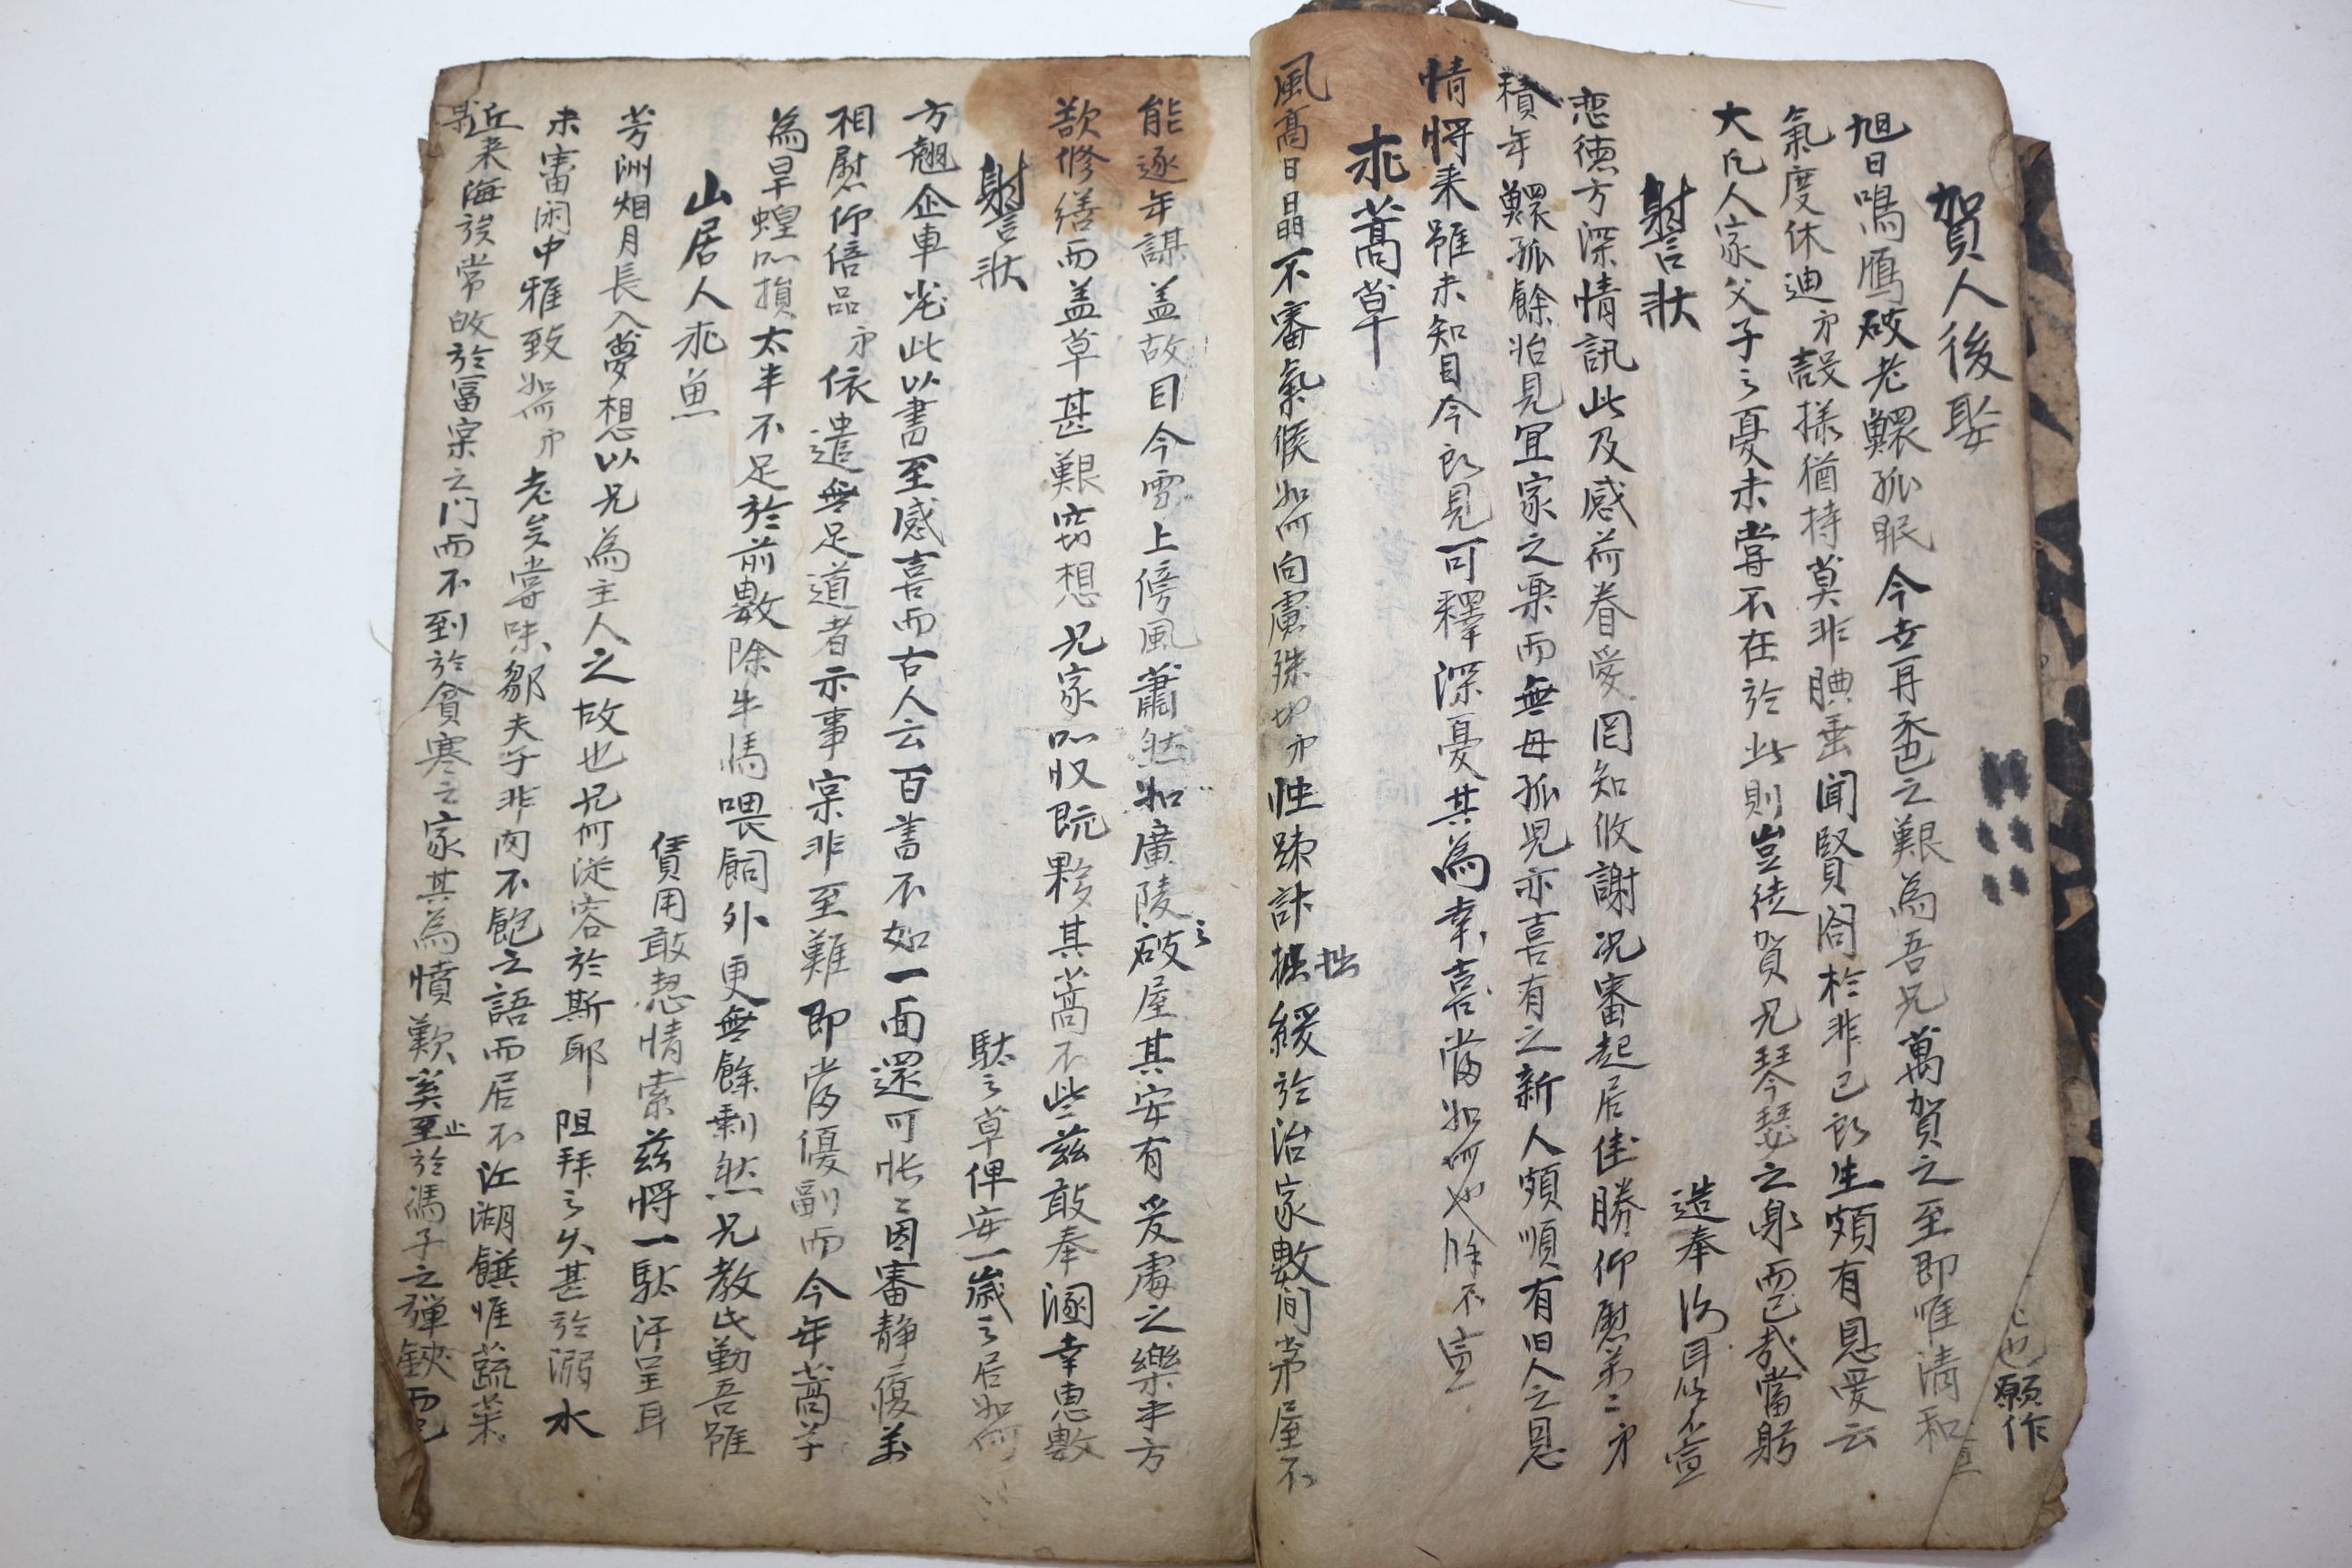 賀人後娶
旭日鳴鴈破老鰥孤眠今古再之艱為吾兄萬賀之至即惟淸和
氣度休迪弟殼樣猶持莫非腆垂聞賢閤於非己郎生頗有恩愛云
大凡人家父子之憂未嘗不在於此則豈徒賀兄琴瑟之而已哉當躬
造奉洽耳不宣
謝狀
恋德方深情訊此及感荷眷愛罔知攸謝況審起居佳勝仰慰弟
積年鰥孤餘始見宜家之樂而無母孤児亦喜有之新人頗順有旧人之恩
情將来雖未知目今所見可釋深憂其為幸喜當如何也餘不宣
求蒿草
風高日晶不審氣候如何向慮殊切弟性踈計拙緩於治家數間茅屋不
拙
能逐年謀盖故目今雪上傍風蕭然如廣陵之破屋其安有爰處之樂乎方
欲修繕而盖草甚艱窃想兄家所收旣夥其蒿不些玆敢奉溷幸惠數
駄之草俾安一歲之居如何
謝狀
方翹企車光此以書至感喜而古人云百書不如一面還可悵因審静履萬
相慰仰倍品弟依遣無足道者示事寔非至難即當優副而今年蒿草
為旱蝗所損太半不足於前數除牛馬喂飼外更無餘剩然兄敎氏勤吾雖
賃用敢恝情索玆將一駄汗呈耳
山居人求魚
芳洲烟月長入夢想以兄為主人之故也兄何從容於斯耶阻拜之久甚於溺水
未審闲中雅致如何弟老矣嘗味鄒夫子非肉不飽之語而居不江湖饌惟蔬菜
近来海族常收於冨家之门而不到於貧寒之家其為憤歎奚至於馮子之彈鋏而已
止
也願作